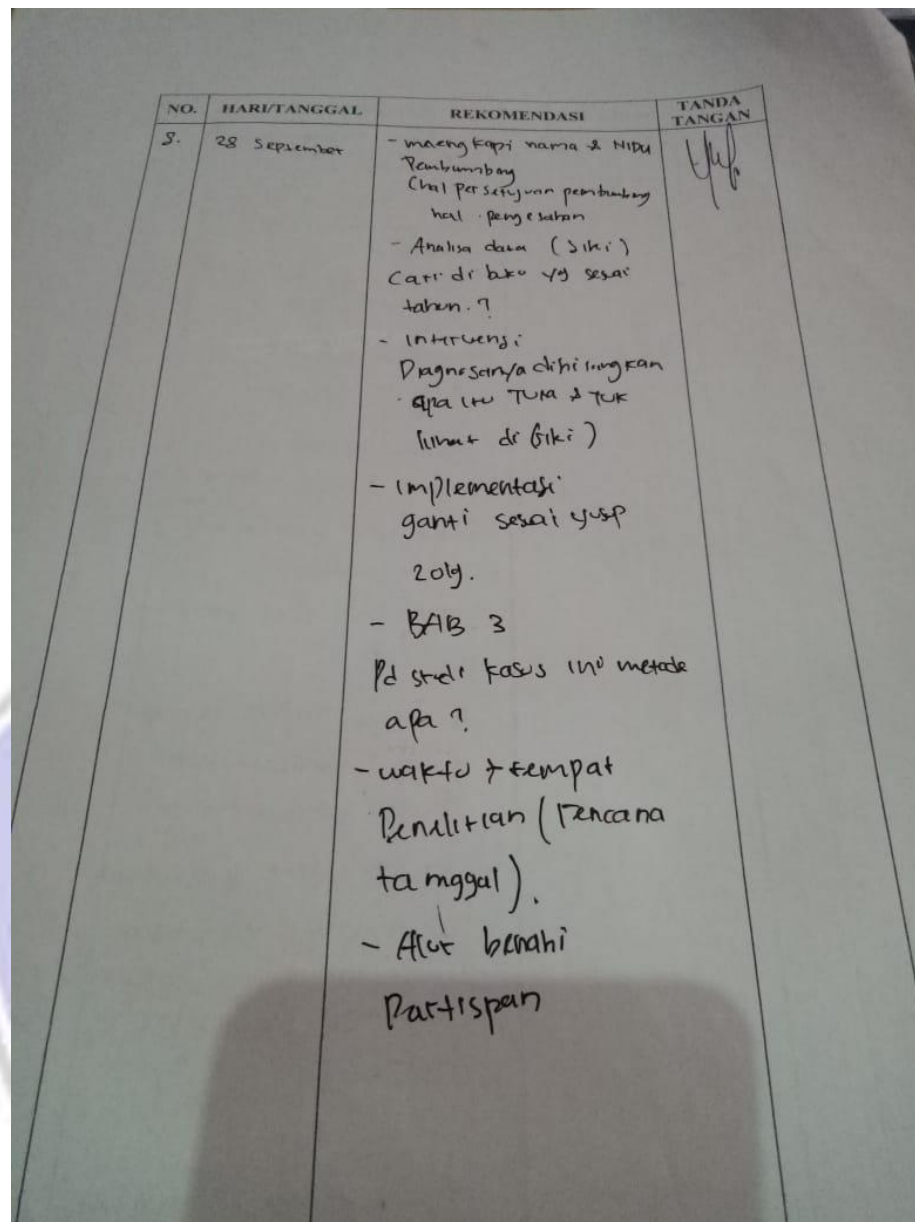 NO. HARI/TANGGAL REKOMENDASI TANDA TANGAN
8. 28 September - maengkapi nama & NIDN
Pembumbbing
(hal persetujuan pembimbing
hal. pengesahan
- Analisa data (Siki)
Cari di buku yg sesai
tahun.?
- Intervensi
Diagnosanya dihilangkan
apa itu TUM & TUK
lihat di Siki)
- Implementasi
ganti sesai
2019.
- BAB 3
Pd studi kasus ini metode
apa?
- waktu + tempat
Penelitian (rencana
tamggal).
- Alur benahi
Partispan